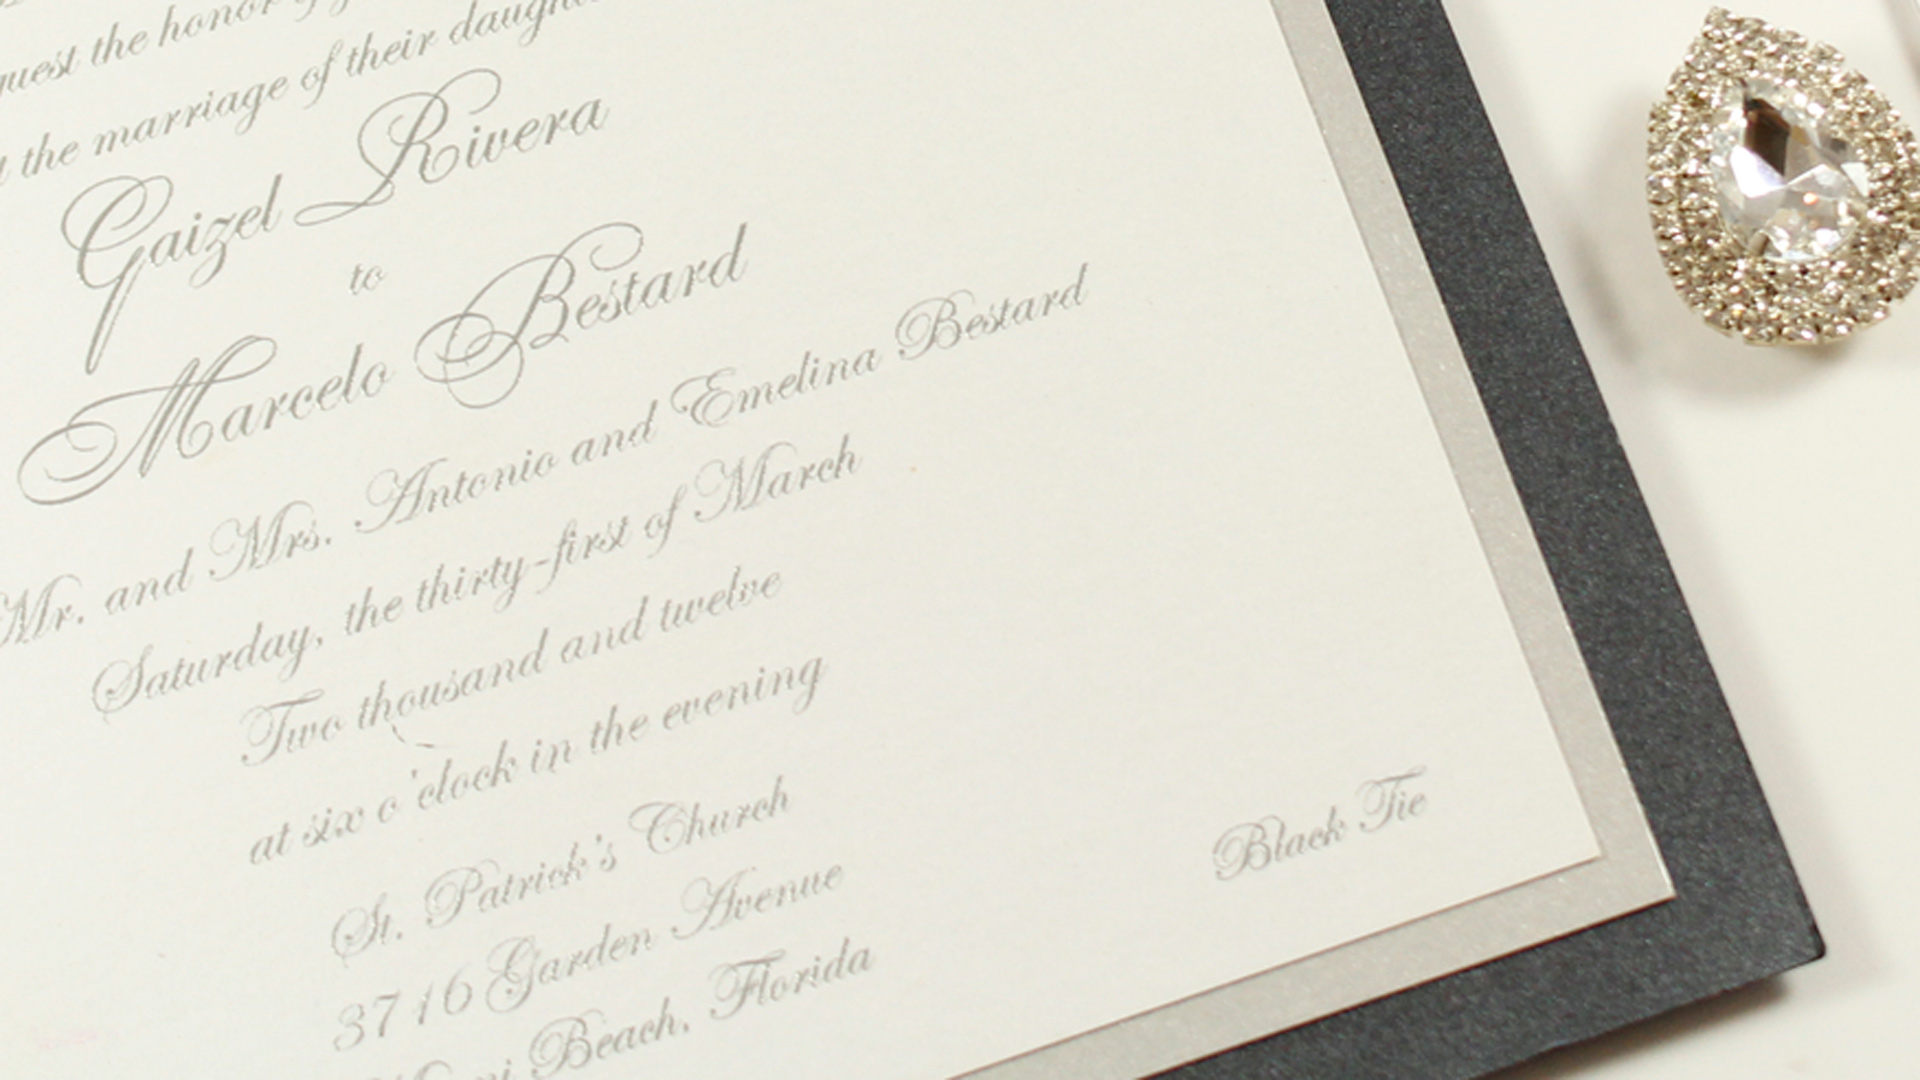 the honor of
the marriage of their
Gaizel Rivera
to
Marcelo Bestard
Mr. and Mrs. Antonio and Emelina Bestard
Saturday, the thirty-first of March
Two thousand and twelve
at six o'clock in the evening
St. Patrick's Church
3716 Garden Avenue
Beach, Florida
Black Tie